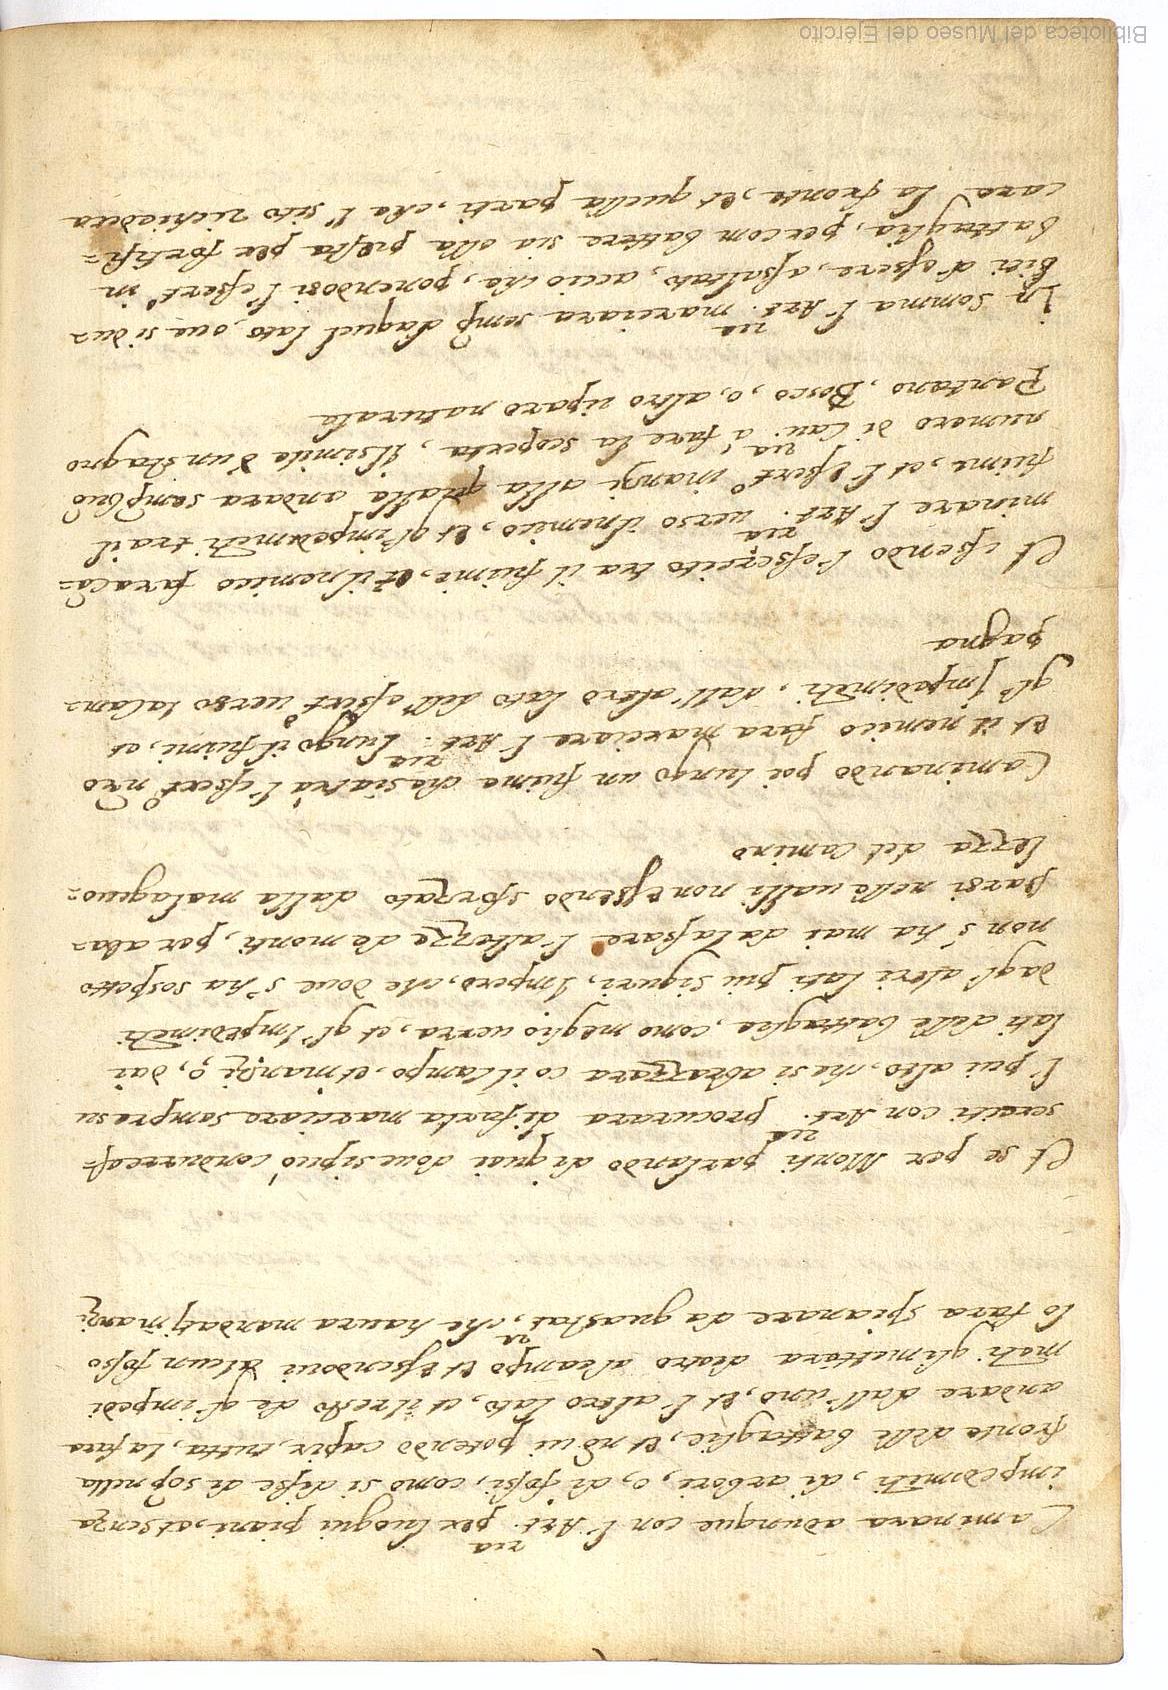 Caminara adunque con l'Art.ria per luogui piani, et senza
impedimti, di arbori, o, di fossi, como si disse di sop nella
fronte delle battaglie, et nō ui potendo capir, tutta, la fara
andare dall'uno, et l'altro lato, et il resto de gl'impedi
mti gli mettara dietro al campo et essendoui alcun fosso
lo fara spianare da guastat.ri, che haura mandati inanzi
Et se per Monti parlando di quai doue si può condurre es=
serciti con Art.ria procurara di farla marciare sempre su
l' piu alto, che si abrazzara co il Campo, et inanzi, o, dai
lati delle battaglie, como meglio uerra, et gl'Impedimti
dagl'altri lati piu siguri, Impero, che doue s'ha sospetto
non s'ha mai da lassare l'altezze de monti, per aba=
sarsi nelle ualli non essendo sforzato dalla malageuo=
lezza del Camino
Caminando poi lungo un fiume che sia trà l'essert.o nrō
et il nemico fara marciare l'Art.ria lungo il fiumi, et
gl'Impedimti, dall'altro lato dell'essert.o uerso la Can=
pagna
Et essendo l'essercito tra il fiume, et il nemico fara Cā=
minare l'Art.ria uerso il nemico, et gl'impedimti tra il
fiume, et l'Essert.o inanzi alla qualle andara semp buō
numero di Cau.ria à fare la scoperta, Il simile d'un stagno
Pantano, Bosco, o, altro riparo naturale
In somma l'Art.ria marciara semp daquel lato, oue si du=
biti d'essere, assaltato, accio che, ponendosi l'essert.o in
battaglia, per com battere sia ella presta per fortifi=
care la fronte, et quella parti, che l' sito richiedera
Biblioteca del Museo del Ejército